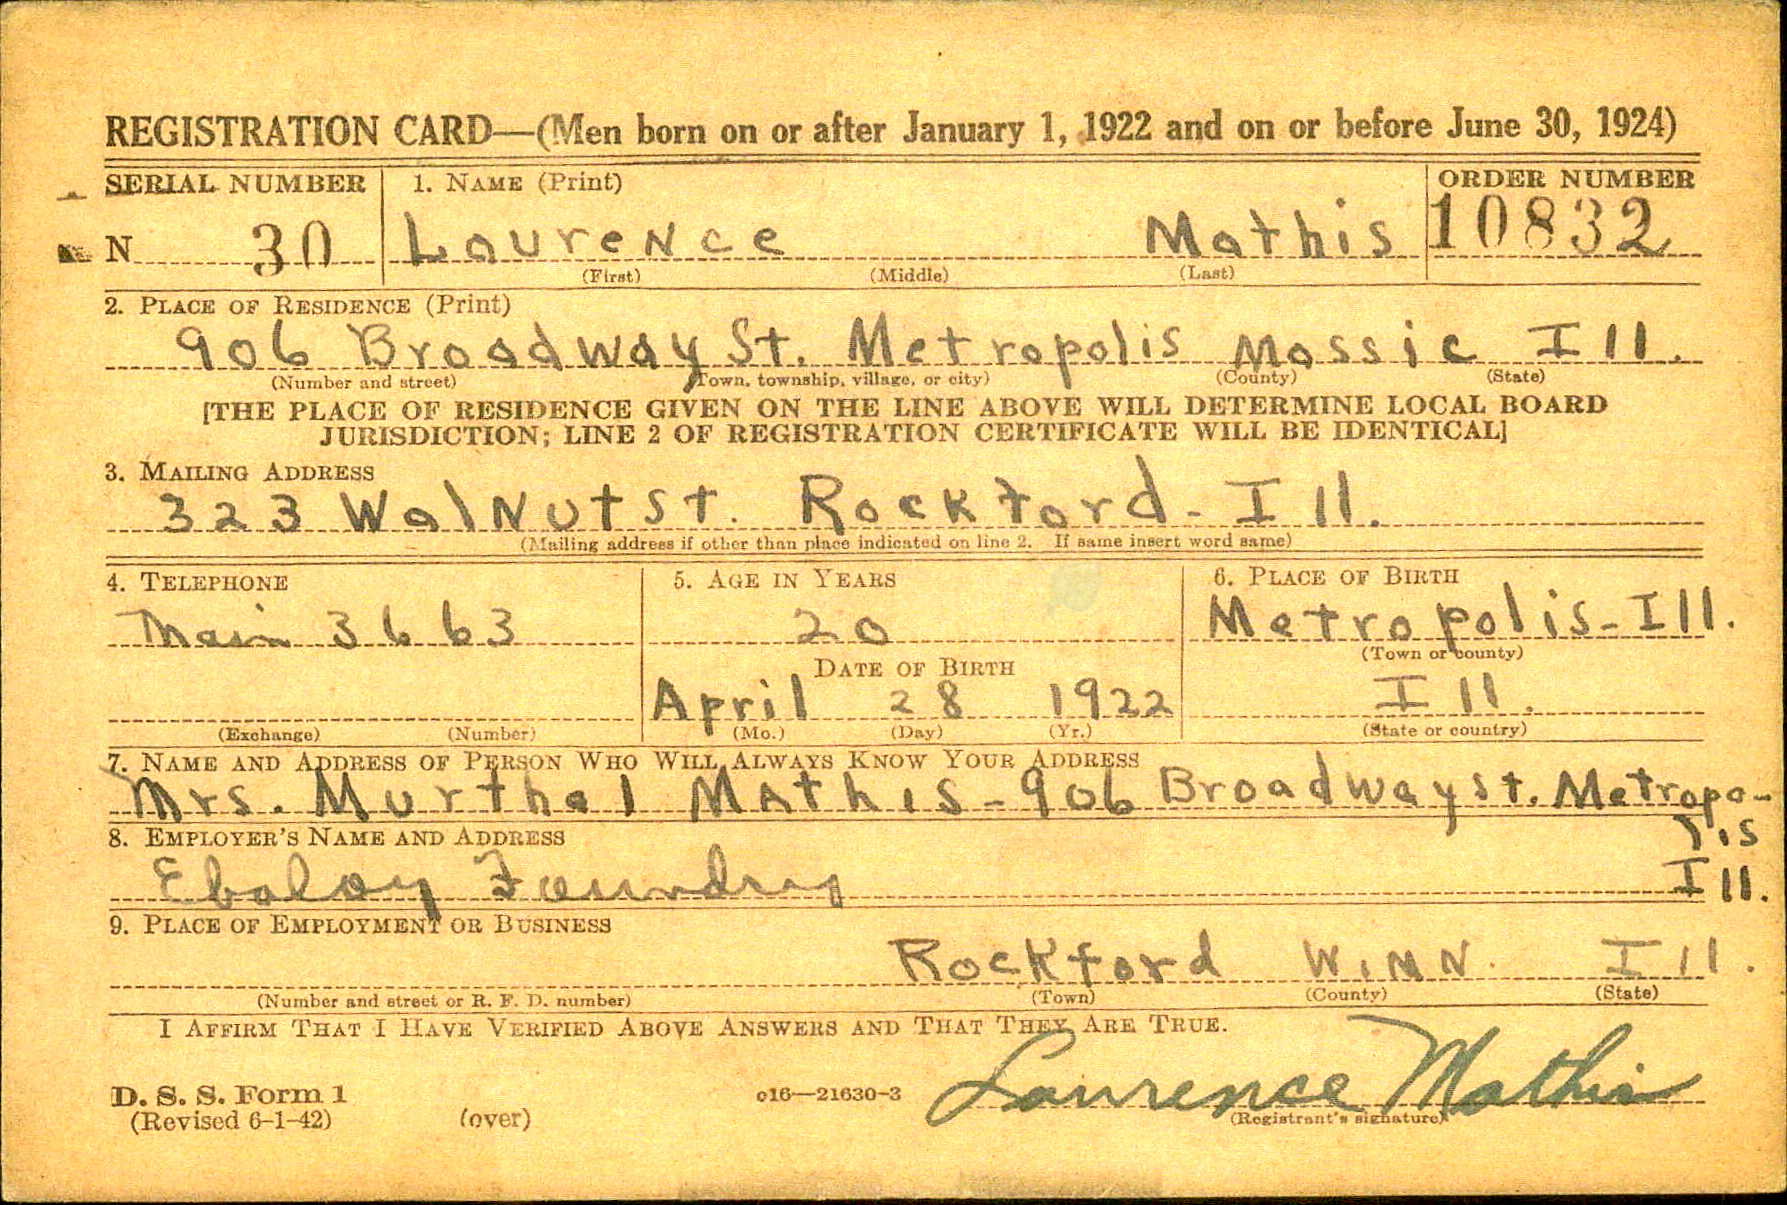 REGISTRATION CARD—(Men born on or after January 1, 1922 and on or before June 30, 1924)
SERIAL NUMBER 1. NAME (Print) ORDER NUMBER
N 30 Laurence Mathis 10832
(First) (Middle) (Last)
2. PLACE OF RESIDENCE (Print)
906 Broadway St. Metropolis Massic Ill.
(Number and street) (Town, township, village, or city) (County) (State)
[THE PLACE OF RESIDENCE GIVEN ON THE LINE ABOVE WILL DETERMINE LOCAL BOARD
JURISDICTION; LINE 2 OF REGISTRATION CERTIFICATE WILL BE IDENTICAL]
3. MAILING ADDRESS
323 Walnut St. Rockford - Ill.
(Mailing address if other than place indicated on line 2. If same insert word same)
4. TELEPHONE 5. AGE IN YEARS 6. PLACE OF BIRTH
Main 3663 20 Metropolis - Ill.
(Town or county)
DATE OF BIRTH
April 28 1922 Ill.
(Exchange) (Number) (Mo.) (Day) (Yr.) (State or country)
7. NAME AND ADDRESS OF PERSON WHO WILL ALWAYS KNOW YOUR ADDRESS
Mrs. Murthal Mathis - 906 Broadway st. Metropo-
lis
8. EMPLOYER'S NAME AND ADDRESS
Ebaloy Foundry Ill.
9. PLACE OF EMPLOYMENT OR BUSINESS
Rockford Winn. Ill.
(Number and street or R. F. D. number) (Town) (County) (State)
I AFFIRM THAT I HAVE VERIFIED ABOVE ANSWERS AND THAT THEY ARE TRUE.
D. S. S. Form 1 c16—21630-3 Laurence Mathis
(Revised 6-1-42) (over) (Registrant's signature)